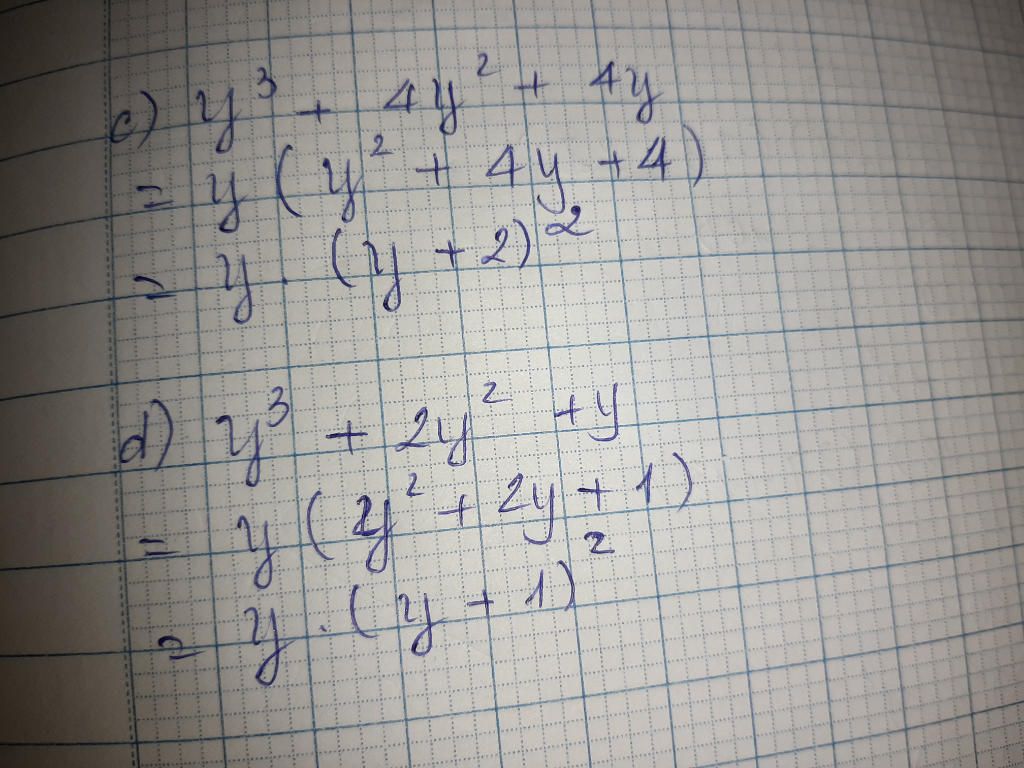 c) y³ + 4y² + 4y
= y (y² + 4y + 4)
= y . (y + 2)²
d) y³ + 2y² + y
= y (y² + 2y + 1)
= y . (y + 1)²